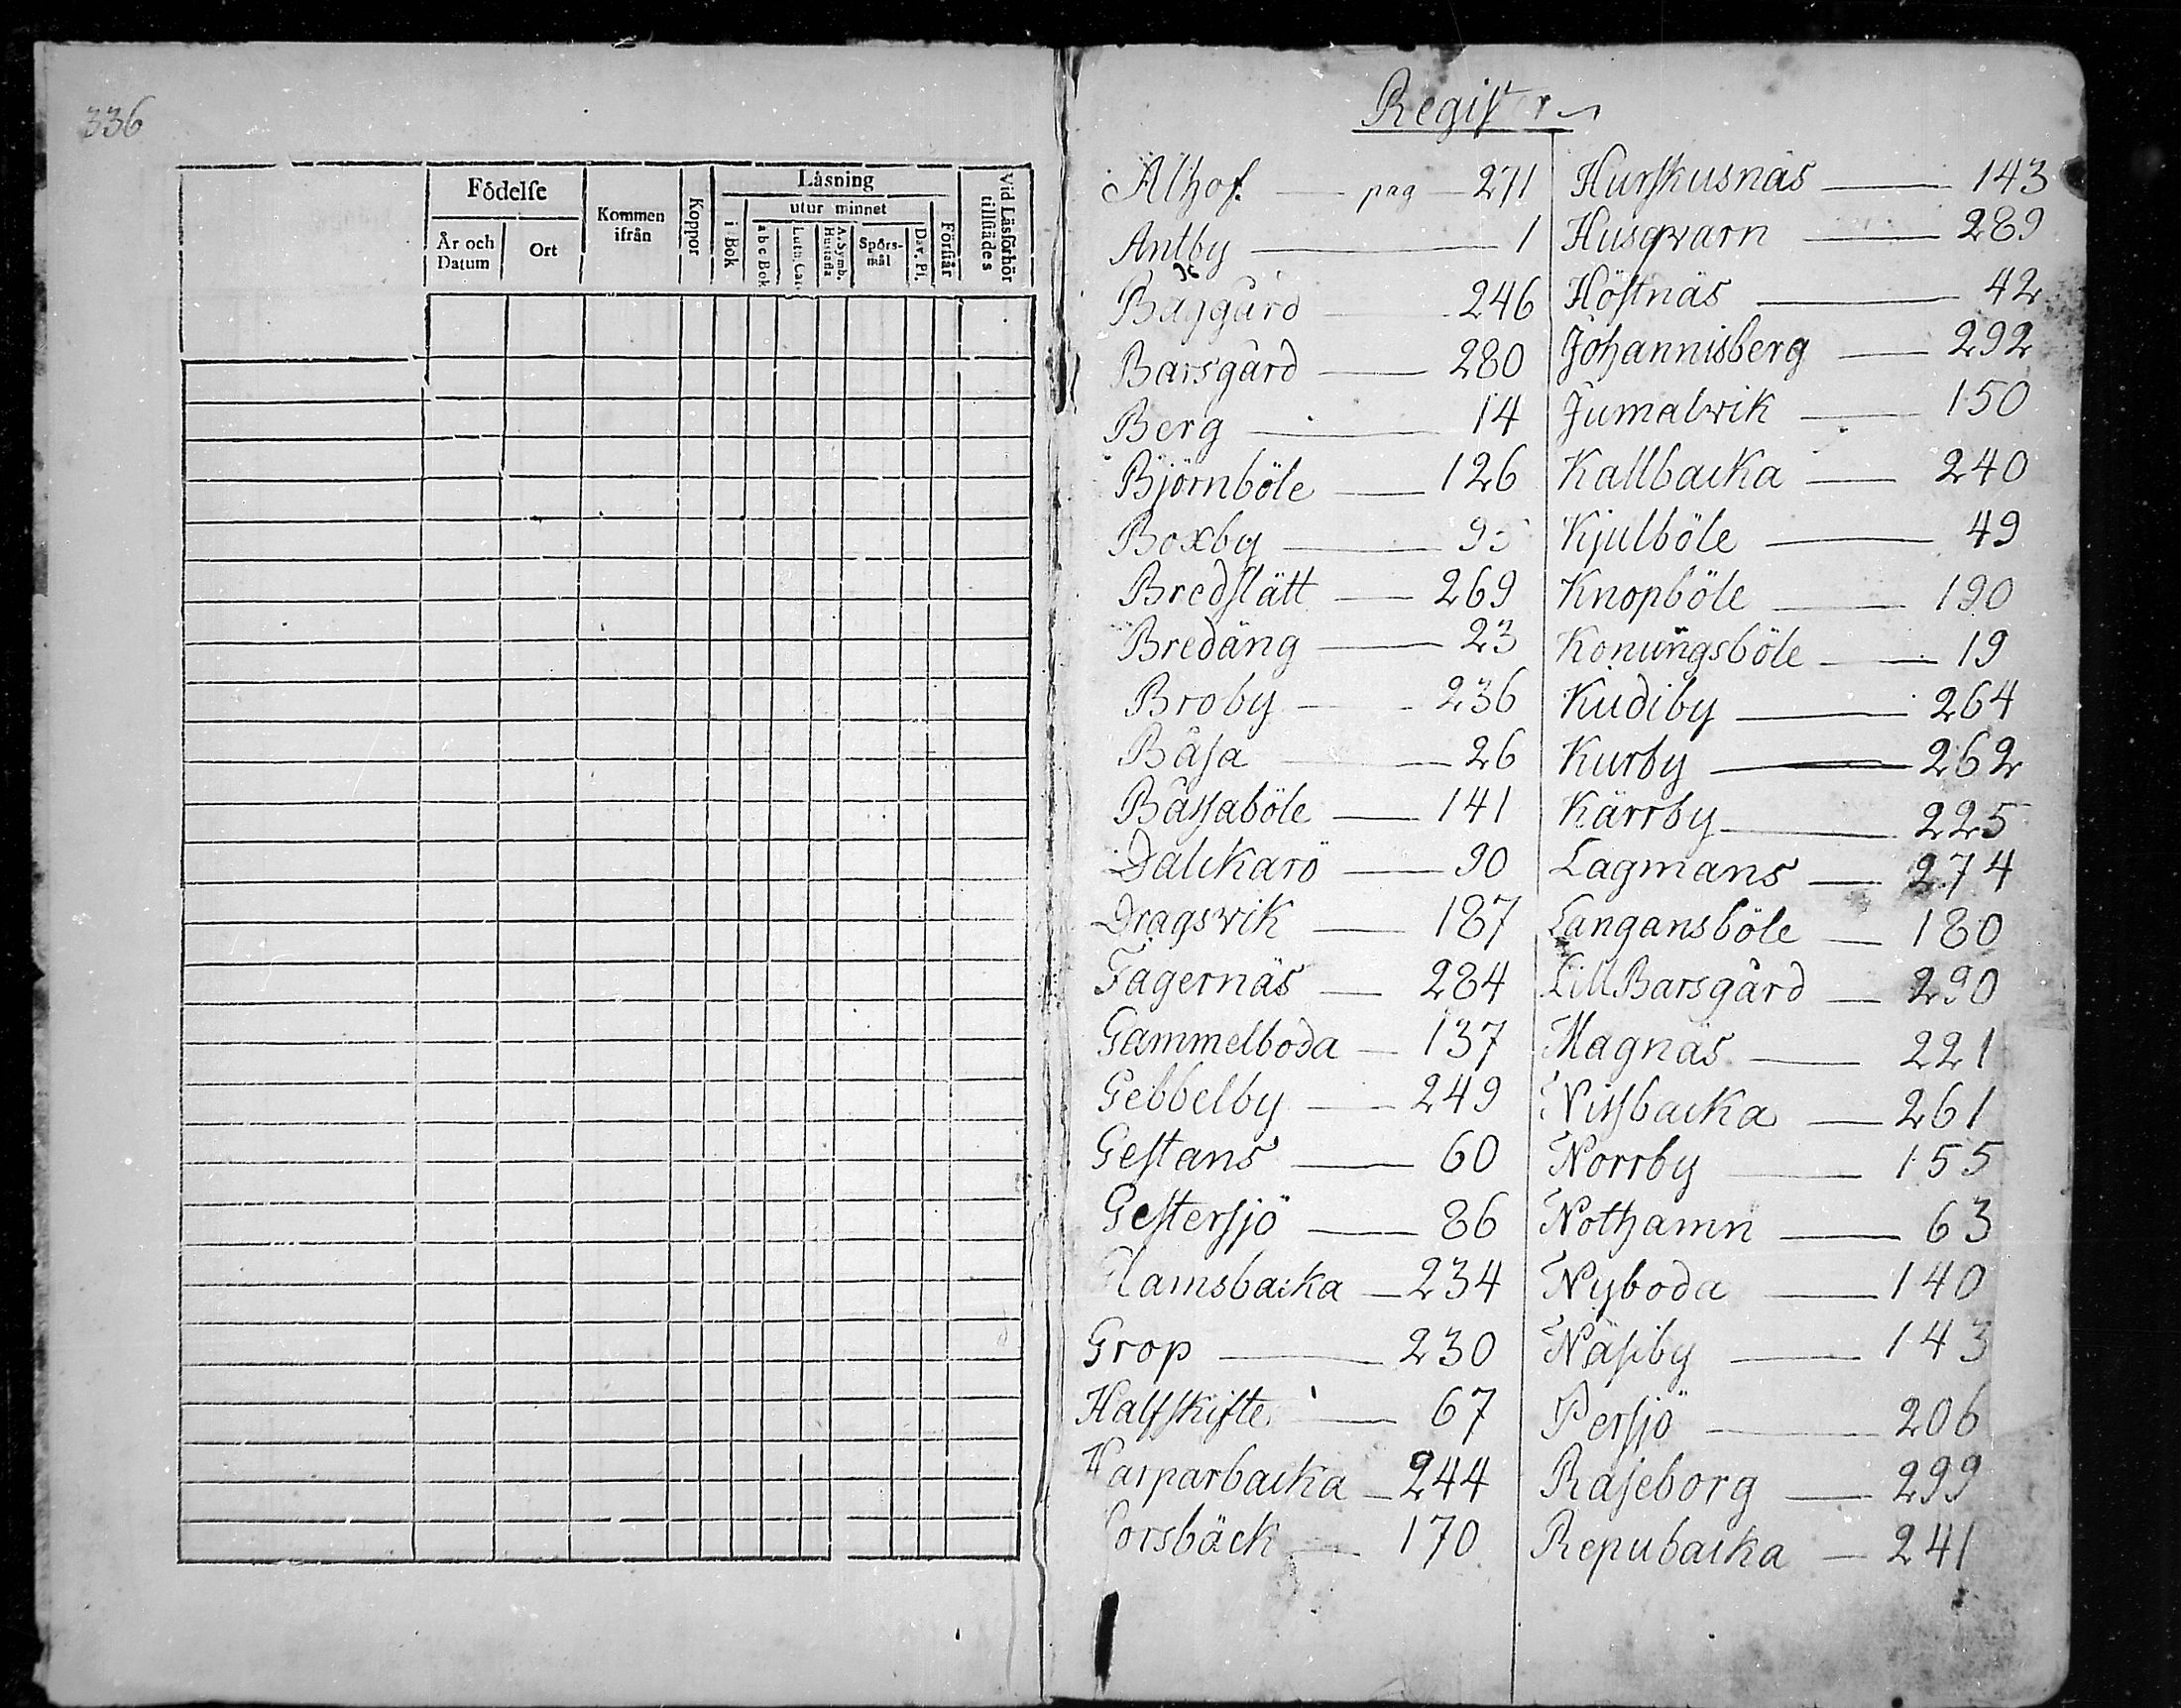 336
Födelse
År och Datum
Ort
Kommen ifrån
Koppor
Läsning
i Bok
utur minnet
a b c Bok
Luth. Cat.
A. Symb. Hustafla
Spörsmål
Dav. Ps.
Förstår
Vid Läsförhör tillstädes
Register
Alhof. — pag — 271
Antby — 1
Bajgård — 246
Barsgård — 280
Berg — 14
Björnböle — 126
Boxby —
Bredslätt — 269
Bredäng — 23
Broby — 236
Båsa — 26
Båssaböle — 141
Dalckarö — 90
Dragsvik — 187
Fagernäs — 284
Gammelboda — 137
Gebbelby — 249
Gestans — 60
Gestersjö — 86
Glamsbacka — 234
Grop — 230
Halfskifte — 67
Harparbacka — 244
Horsbäck — 170
Hurskusnäs — 143
Husqvarn — 289
Höstnäs — 42
Johannisberg — 292
Jumalvik — 150
Kallbacka — 240
Kjulböle — 49
Knopböle — 190
Konungsböle — 19
Kudiby — 264
Kurby — 262
Kärrby — 225
Lagmans — 274
Langansböle — 180
Lill Barsgård — 290
Magnäs — 221
Nissbacka — 261
Norrby — 155
Nothamn — 63
Nyboda — 140
Näsiby — 143
Persjö — 206
Raseborg — 299
Repubacka — 241